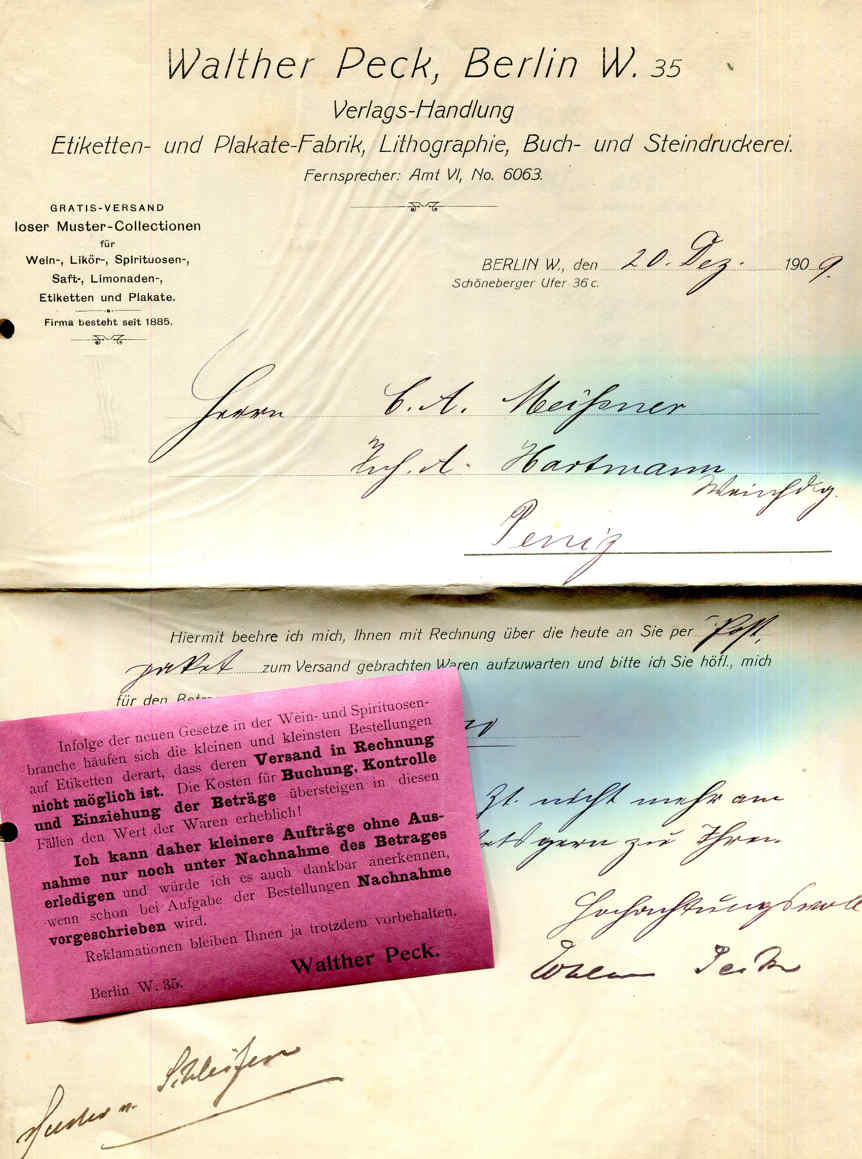 Walther Peck, Berlin W. 35
Verlags-Handlung
Etiketten- und Plakate-Fabrik, Lithographie, Buch- und Steindruckerei.
Fernsprecher: Amt VI, No. 6063.
GRATIS-VERSAND
loser Muster-Collectionen
für
Wein-, Likör-, Spirituosen-,
Saft-, Limonaden-,
Etiketten und Plakate.
Firma besteht seit 1885.
BERLIN W., den 20. Dez. 1909.
Schöneberger Ufer 36c.
Herrn C. A. Meißner
Inh. A. Hartmann
Weinhdlg.
Penig
Hiermit beehre ich mich, Ihnen mit Rechnung über die heute an Sie per Post,
paket zum Versand gebrachten Waren aufzuwarten und bitte ich Sie höfl., mich
für den
Infolge der neuen Gesetze in der Wein- und Spirituosen-
branche häufen sich die kleinen und kleinsten Bestellungen
auf Etiketten derart, dass deren Versand in Rechnung
nicht möglich ist. Die Kosten für Buchung, Kontrolle
und Einziehung der Beträge übersteigen in diesen
Fällen den Wert der Waren erheblich!
Ich kann daher kleinere Aufträge ohne Aus-
nahme nur noch unter Nachnahme des Betrages
erledigen und würde ich es auch dankbar anerkennen,
wenn schon bei Aufgabe der Bestellungen Nachnahme
vorgeschrieben wird.
Reklamationen bleiben Ihnen ja trotzdem vorbehalten.
Walther Peck.
Berlin W. 35.
zt. nicht mehr am
gern zu Ihren
Hochachtungsvoll
Walther Peck
Muster n. Schleifen